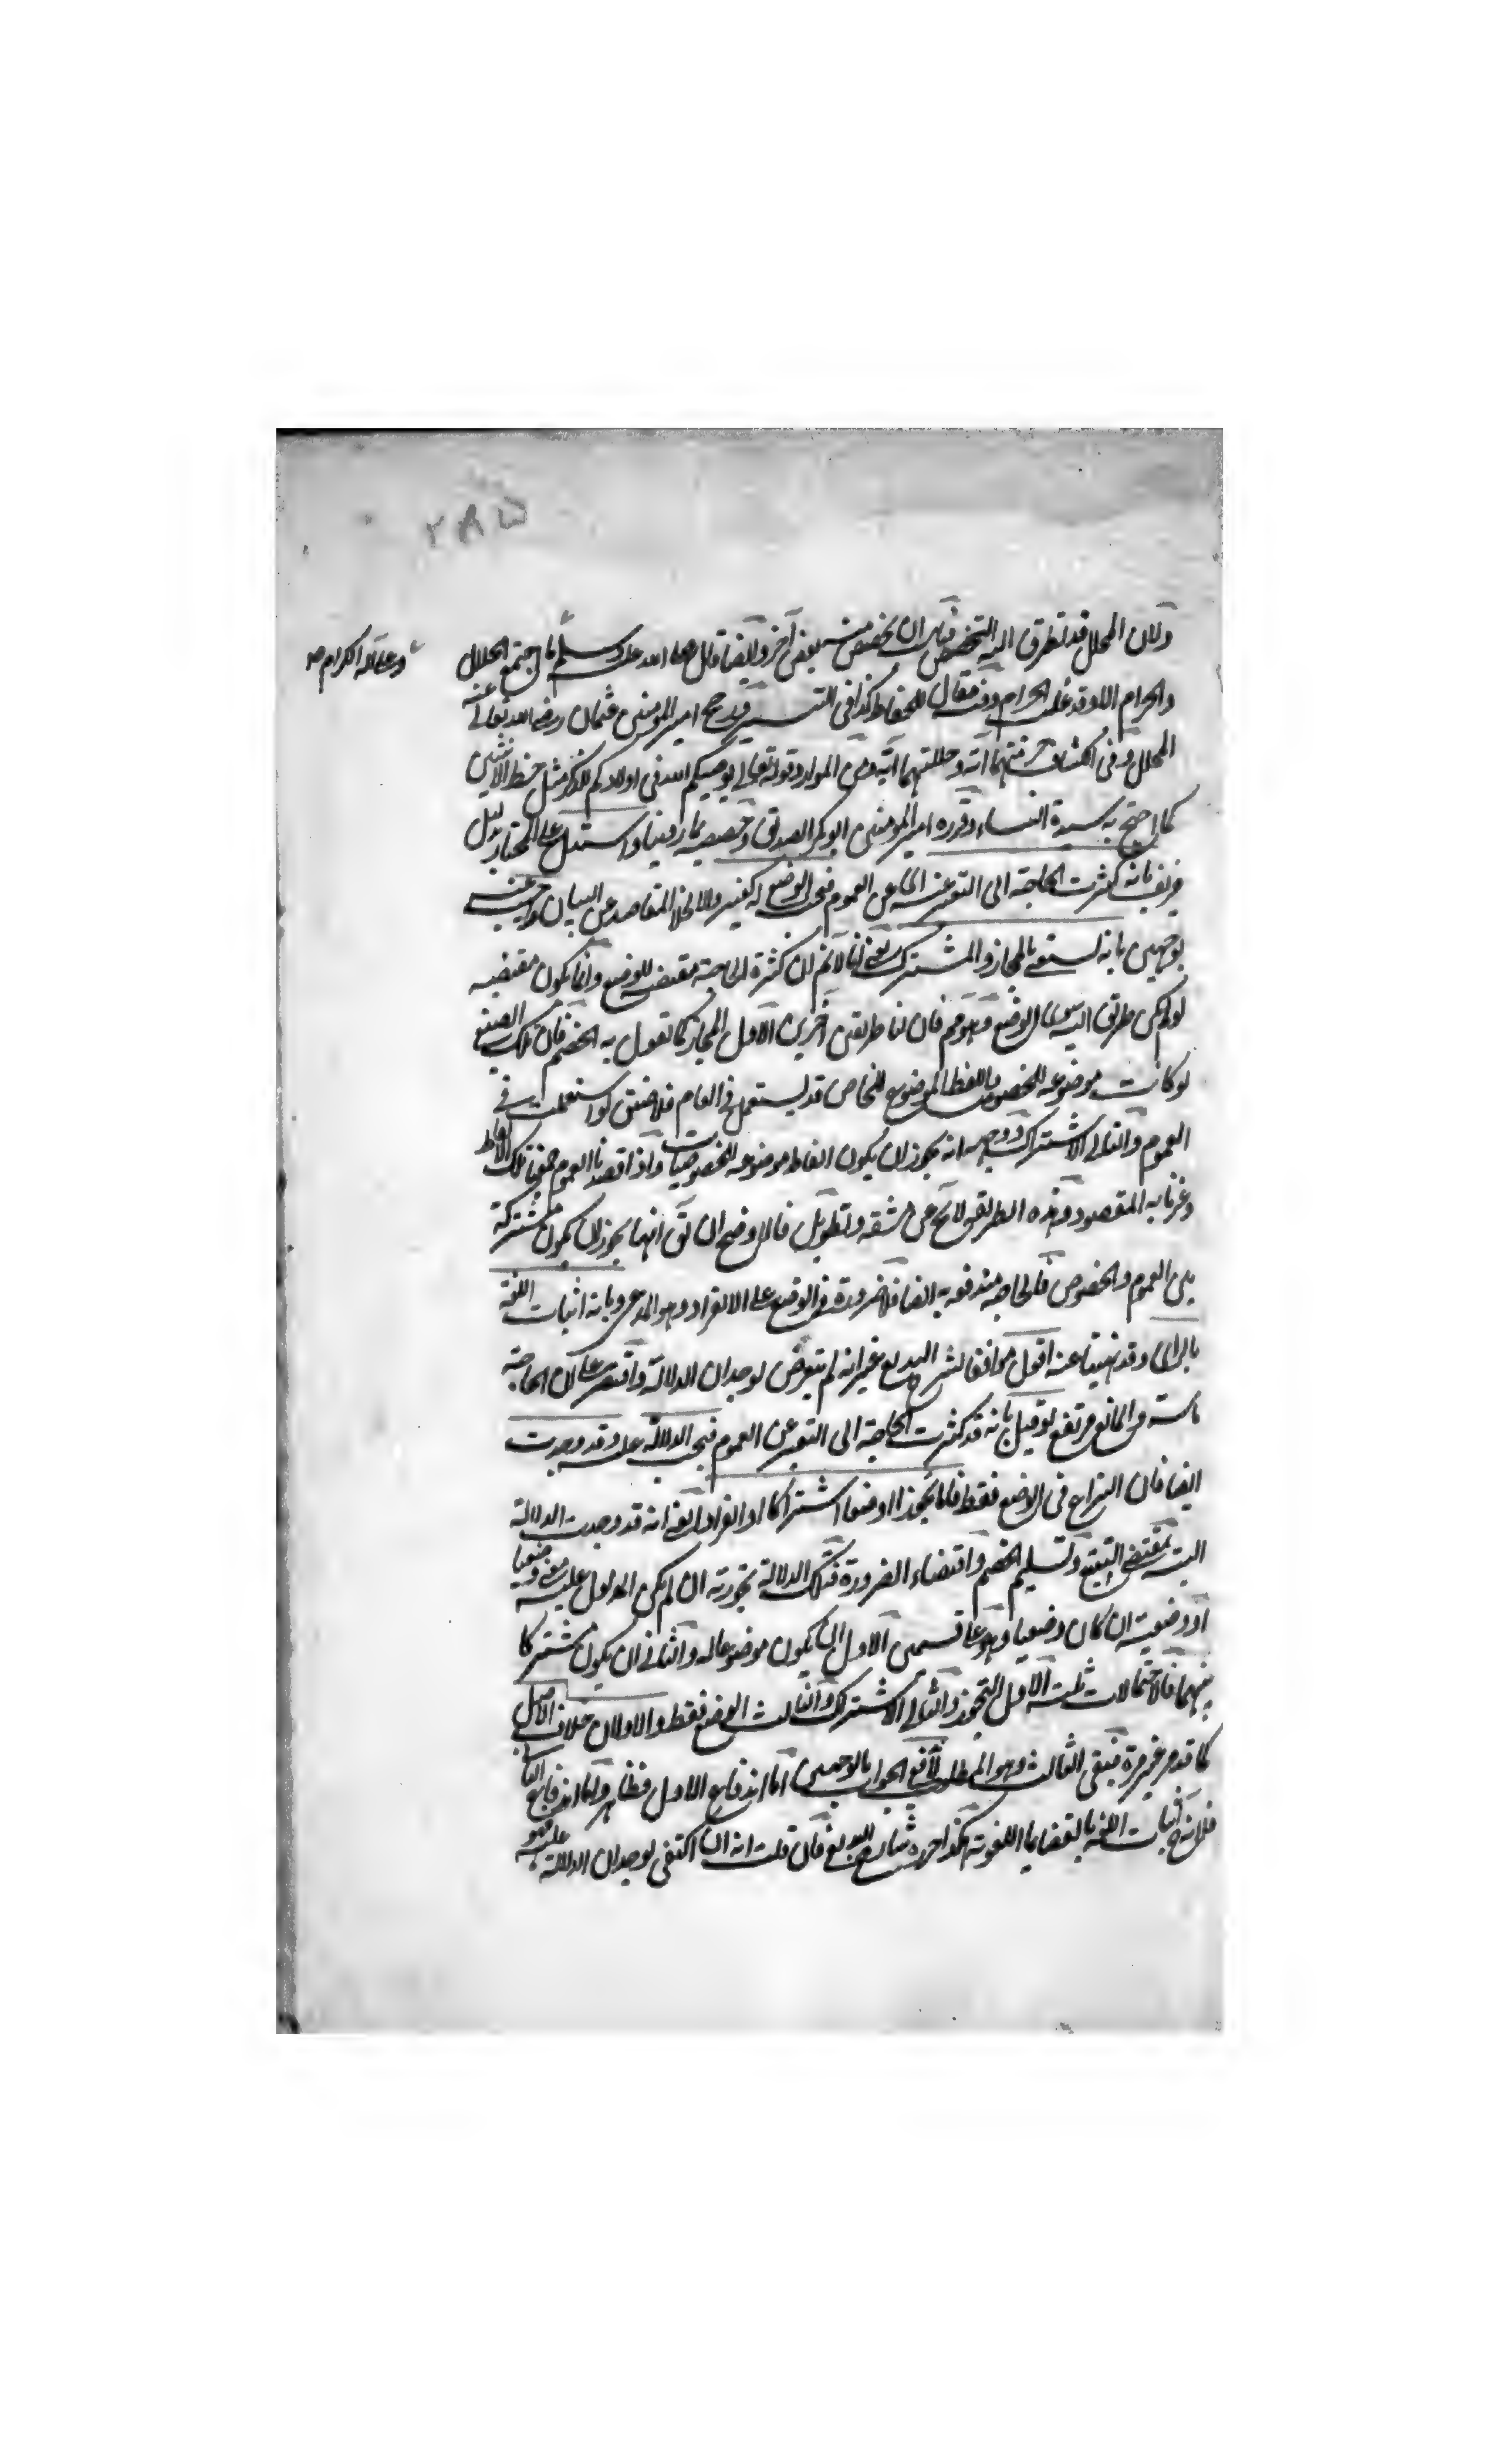 ٢٨٥
ولان المحلل قد تطرق اليه التخصيص فناسب ان يخصص منه بعض آخر وايضا قال صلى الله عليه وسلم ما اجتمع الحلال
وعلى آله الكرام صح
والحرام الا وقد غلب الحرام وفيه مقال للحفاظ كذا في التيسير ورجح امير المؤمنين عثمان رضي الله تعالى عنه
المحلل وفي الكشاف حرمتهما آية وحللتهما آية ومن الموارد قوله تعالى يوصيكم الله في اولادكم للذكر مثل حظ الانثيين
كما احتج به سيدة النساء وقرره امير المؤمنين ابو بكر الصديق وخصصه بما روينا واستدل على المختار بدليل
مزيف بانه كثرت الحاجة الى التعبير عنه اي عن العموم فيجب الوضع له كغيره والا لاختل المقاصد عن البيان واجيب عنه
بوجهين بانه يستغنى بالمجاز والمشترك يعني انا لا نم ان كثرة الحاجة مقتضية للوضع وانما يكون مقتضية
لو لم يكن طريق اليه سوى الوضع وهو مم فان لنا طريقين آخرين الاول المجاز كما تقول به الخصم فان تلك الصيغ
لو كانت موضوعة للخصوص واللفظ الموضوع للخاص قد يستعمل في العام فلا ضيق لو استعملت في
العموم والثاني الاشتراك ووجهه انه يجوز ان يكون الفاظ موضوعة للخصوصيات واذا قصدنا العموم جمعنا تلك الالفاظ
وعبرنا به المقصود وهذه الطريقة لا تخ عن مشقة وتطويل فالاوضح ان تق انها يجوز ان يكون مشتركة
بين العموم والخصوص فالحاجة مندفعة به ايضا فلا ضرورة في الوضع على الانفراد وهو المدعى وبانه اثبات اللغة
بالراى وقد نهينا عنه اقول موافقا لشرح البديع غير انه لم يتعرض لوجدان الدلالة واقتصر على ان الحاجة
ماسة والمانع مرتفع لو قيل بانه قد كثرت الحاجة الى التعبير عن العموم فيجب الدلالة عليه وقد وجدت
ايضا فان النزاع في الوضع فقط فاما تجوزا او وضعا اشتراكا او انفرادا يعني انه قد وجدت الدلالة
البتة بمقتضى التتبع وتسليم الخصم واقتضاء الضرورة فتلك الدلالة تجوزية ان لم يكن المدلول عليه معنى وضعيا
او وضعية ان كان وضعيا وهو على قسمين الاول ان يكون موضوعا له والثاني ان يكون مشتركا
بينهما فالاحتمالات ثلثة الاول التجوز والثاني الاشتراك والثالث الوضع فقط والاولان خلاف الاصل
كما قد مر غير مرة فبقي الثالث وهو المطلوب لاندفع الجواب بالوجهين اما اندفاع الاول فظاهر واما اندفاع الثاني
فلانه ح اثبات اللغة بالقضايا اللغوية هكذا حرره شارح البديع فان قلت انه ان اكتفى لوجدان الدلالة عليه فهو